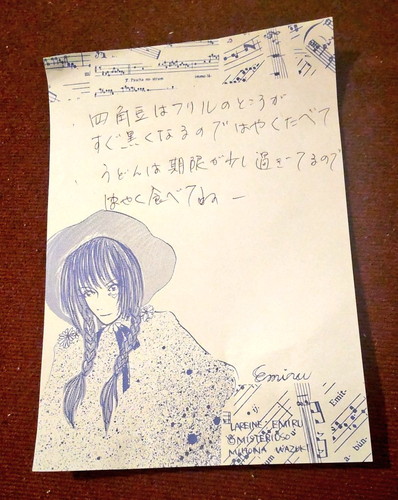 四角豆はフリルのところが
すぐ黒くなるのではやくたべて
うどんは期限が少し過ぎてるので
はやく食べてねー
Emiru
LAREINE EMIRU
MISTERIOSO
Emit-
ij.
bún-